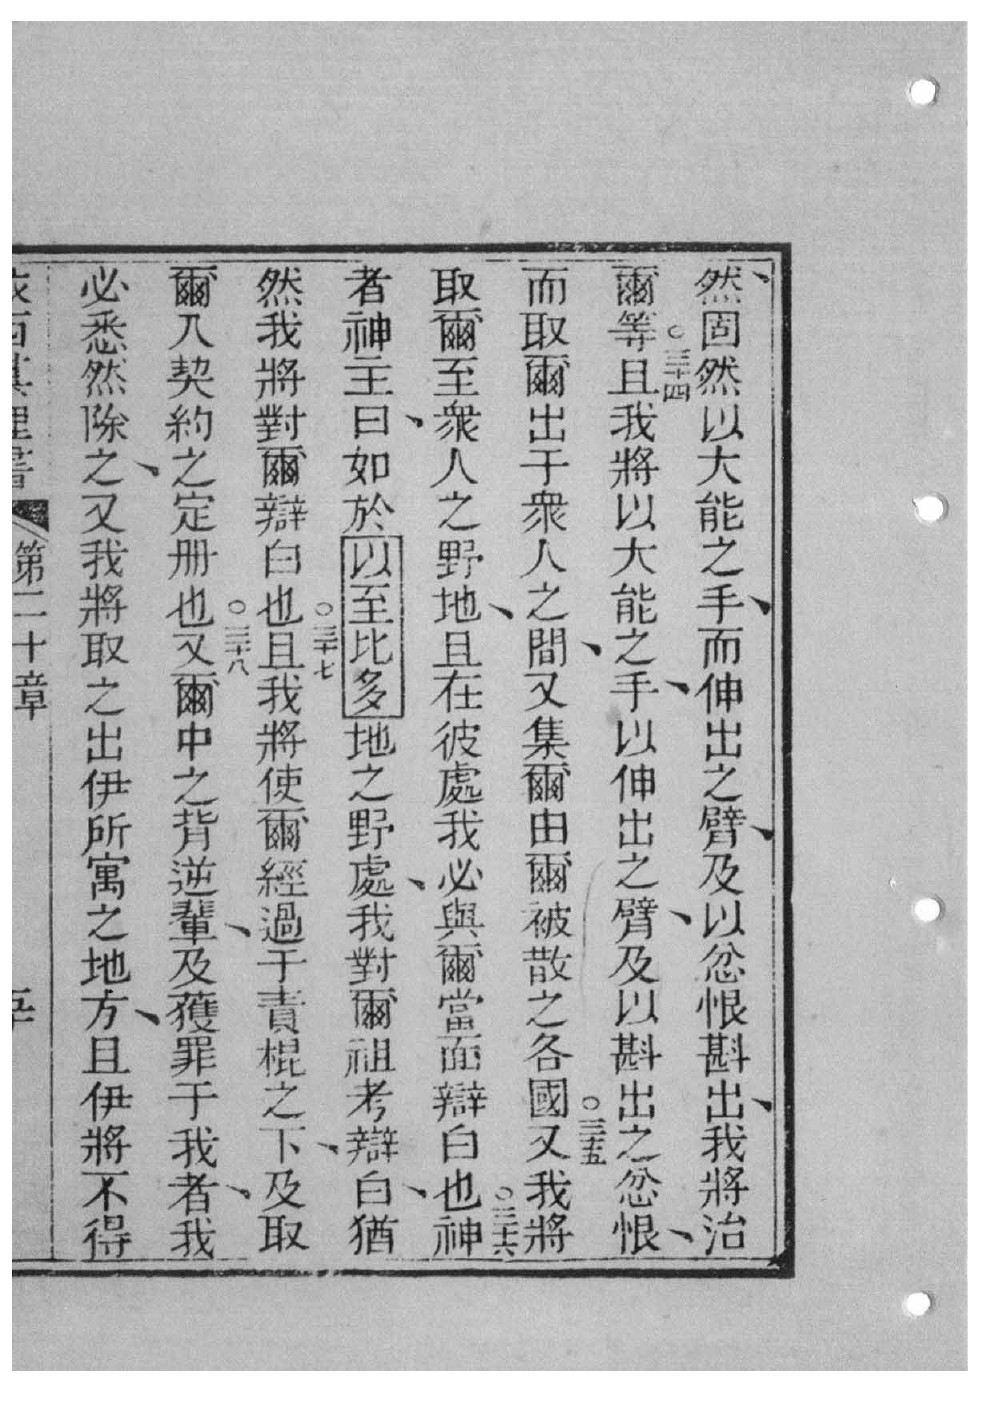 然固然以大能之手而伸出之臂及以忿恨斟出我將治
爾等○三十四且我將以大能之手以伸出之臂及以斟出之忿恨
而取爾出于衆人之間又集爾由爾被散之各國○三十五又我將
取爾至衆人之野地且在彼處我必與爾當面辯白也○三十六神
者神主曰如於以至比多地之野處我對爾祖考辯白猶
然我將對爾辯白也○三十七且我將使爾經過于責棍之下及取
爾入契約之定册也○三十八又爾中之背逆輩及獲罪于我者我
必悉然除之又我將取之出伊所寓之地方且伊將不得
第二十章